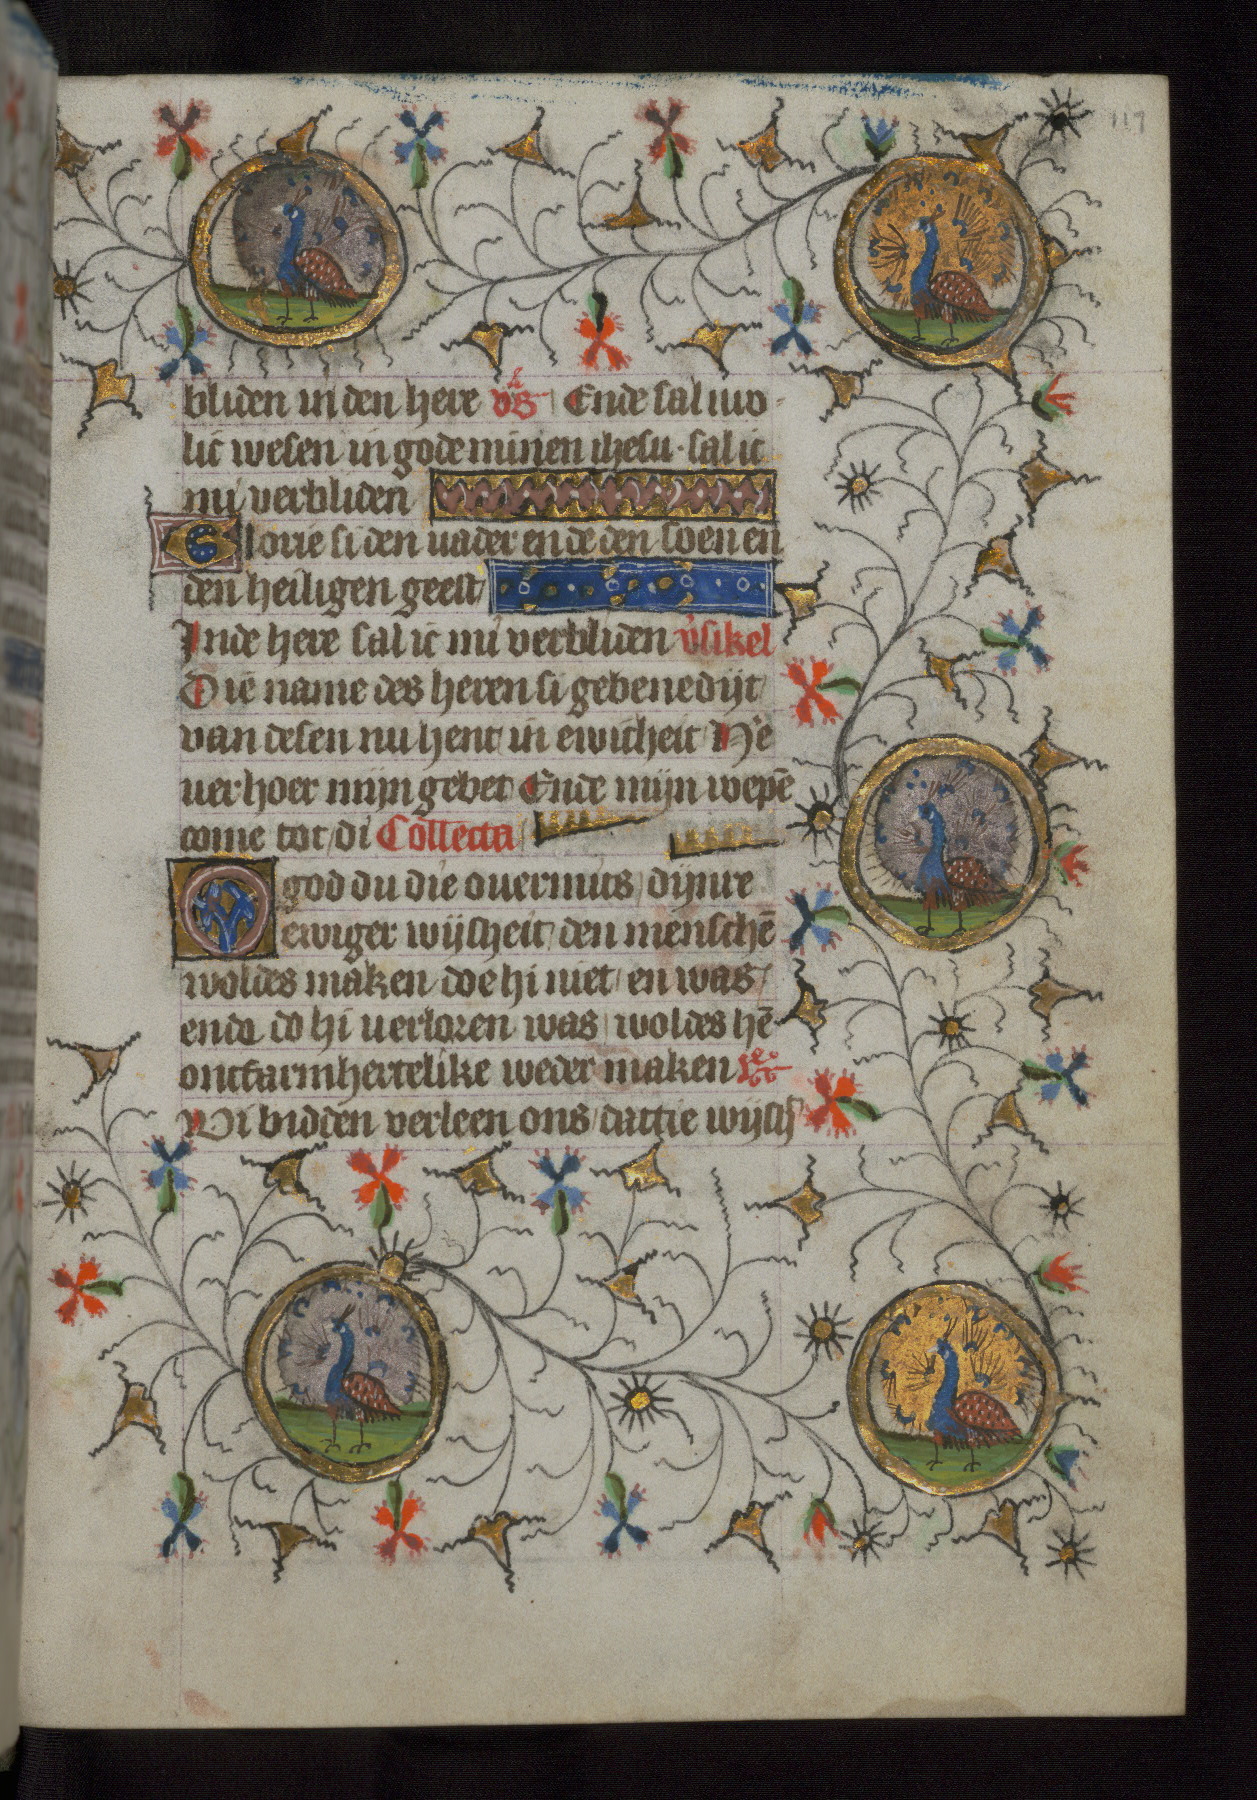 117
bliden in den here vs Ende sal iuo
lic wesen in gode minen ihesu · sal ic
mi verbliden
Glorie si den uader en de den soen en
den heiligen geest
Inde here sal ic mi verbliden v'sikel
Die name des heren si gebenedijt
van desen nu hent in ewicheit He
uerhoer mijn gebet Ende mijn wepē
come tot di Collecta
O god du die ouermits dijnre
ewiger wijsheit den menschē
woldes maken doe hi niet en was
ende do hi uerloren was woldes hē
ontfarmhertelike weder maken
Wi bidden verleen ons dattie wijsh